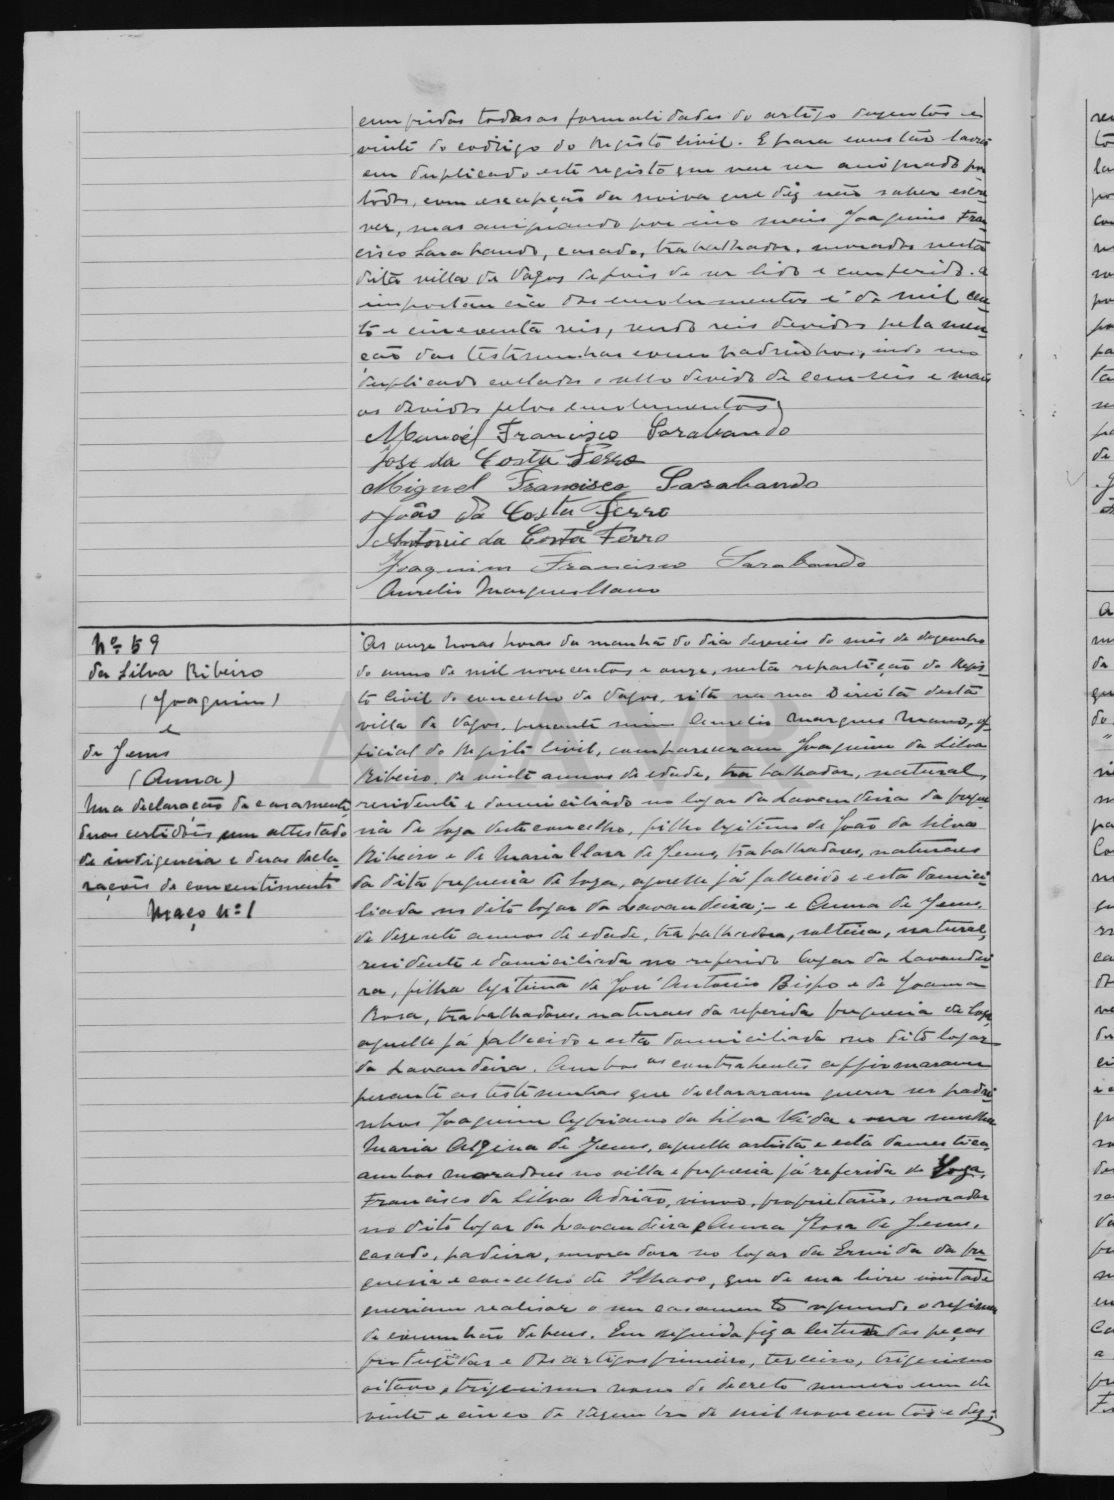 cumpridas todas as formalidades do artigo duzentos e
vinte do codigo do Registo Civil. E para constar lavrei
em duplicado este registo que vae ser assignado por
todos, com excepção da noiva que diz não saber escre-
ver, mas assignando por isso mais Joaquim Fran-
cisco Sarabando, casado, trabalhador, morador nesta
dita villa de Vagos depois de ser lido e conferido. A
importancia dos emolumentos é de mil cen-
to e cincoenta reis, sendo reis devidos pela men-
ção das testemunhas como padrinhos, indo no
duplicado collados o sello devido de cem reis e mais
os devidos pelos emolumentos
Manoel Francisco Sarabando
José da Costa Ferro
Miguel Francisco Sarabando
João da Costa Ferro
Antonio da Costa Ferro
Joaquim Francisco Sarabando
Aurelio Marques Mano
Nº 59
da Silva Ribeiro
(Joaquim)
e
de Jesus
(Anna)
Uma declaração de casamento,
duas certidões, um attestado
de indigencia e duas decla-
rações de consentimento
Maço nº 1
As onze horas horas da manhã do dia deseseis do mês de dezembro
do anno de mil novecentos e onze, nesta repartição do Regis-
to Civil do concelho de Vagos, sita na rua Direita desta
villa de Vagos, perante mim Aurelio Marques Mano, of-
ficial do Registo Civil, compareceram Joaquim da Silva
Ribeiro, de vinte annos de edade, trabalhador, natural,
residente e domiciliado no logar da Lavandeira da fregue-
sia de Soza deste concelho, filho legitimo de João da Silva
Ribeiro e de Maria Clara de Jesus, trabalhadores, naturaes
da dita freguesia de Soza, aquelle já fallecido e esta domici-
liada no dito logar da Lavandeira; - e Anna de Jesus,
de desesete annos de edade, trabalhadora, solteira, natural,
residente e domiciliada no referido logar da Lavandei-
ra, filha legitima de José Antonio Bispo e de Joanna
Rosa, trabalhadores, naturaes da referida freguesia de Soza,
aquelle já fallecido e esta domiciliada no dito logar
da Lavandeira. Ambos os contrahentes affirmaram
perante as testemunhas que declararam querer ser padri-
nhos Joaquim Cypriano da Silva Vida e sua mulher
Maria de Jesus, aquelle artista e esta domestica,
ambos moradores na villa e freguesia já referida de Soza,
Francisco da Silva Adrião, viuvo, proprietario, morador
no dito logar da Lavandeira e Anna Rosa de Jesus,
casada, padeira, moradora no logar da Ermida da fre-
guesia e concelho de Ilhavo, que de sua livre vontade
queriam realisar o seu casamento segundo o regimen
de comunhão de bens. Em seguida fiz a leitura das peças
produzidas e dos artigos primeiro, terceiro, trigesimo
oitavo, trigesimo nono do decreto numero um de
vinte e cinco de dezembro de mil novecentos e dez;
ADAVR